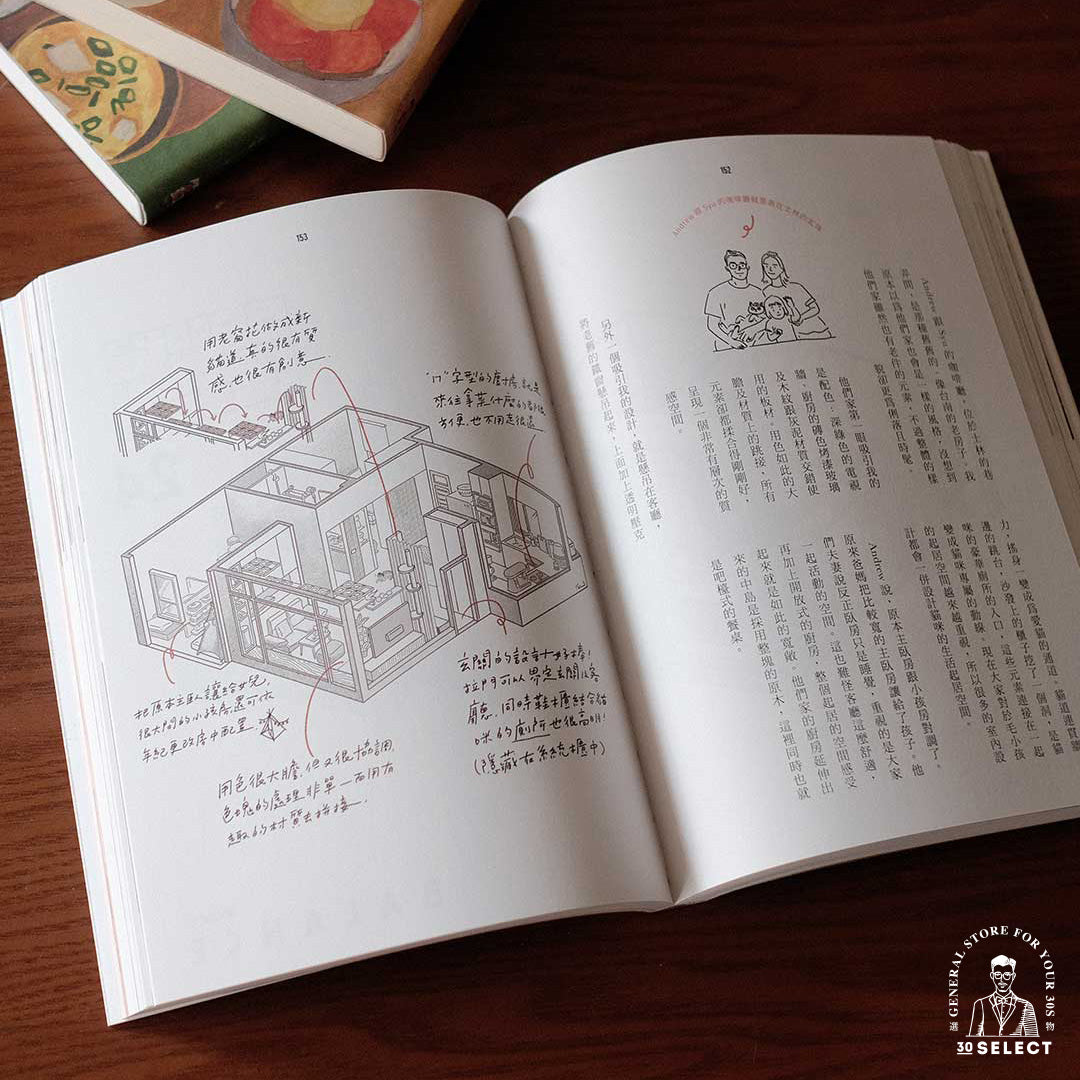 152
Andrew 跟 Syu 的咖啡廳
Andrew 跟 Syu 的咖啡廳，位於士林的巷
弄間，是那種舊舊的、像台南的老房子。我
原本以為他們家也會是一樣的風格，沒想到
他們家雖然也有老件的元素，不過整體的樣
貌卻更為俐落且時髦。
他們家第一眼吸引我的
是配色：深綠色的電視
牆、廚房的磚色烤漆玻璃
及木紋跟灰泥材質交錯使
用的板材。用色如此的大
膽及材質上的跳接，所有
元素卻都揉合得剛剛好，
呈現一個非常有層次的質
感空間。
另外一個吸引我的設計，就是懸吊在客廳，
將老舊的鐵窗懸吊起來，上面加上透明壓克
力，搖身一變成為愛貓的通道，貓道連貫牆
邊的跳台，沙發上的櫃子挖了一個洞，是貓
咪的豪華廁所的入口，這些元素連接在一起
變成貓咪專屬的動線。現在大家對於毛小孩
的起居空間越來越重視，所以很多的室內設
計都會一併設計貓咪的生活起居空間。
Andrew 說，原本主臥房跟小孩房對調了。
原來爸媽把比較寬的主臥房讓給了孩子。他
們夫妻說反正臥房只是睡覺，重視的是大家
一起活動的空間。這也難怪客廳這麼舒適，
再加上開放式的廚房，整個起居的空間感受
起來就是如此的寬敞。他們家的廚房延伸出
來的中島是採用整塊的原木，這裡同時也就
是吧檯式的餐桌。
153
用老窗花做成新
貓道，真的很有質
感，也很有創意.
"ㄇ"字型的廚房,就是
來往拿菜什麼的都很
方便,也不用走很遠
把原本主臥讓給女兒,
很大間的小孩房,還可依
年紀更改房中配置
用色很大膽,但又很協調,
色塊的處理非單一而用有
趣的材質去拼接.
玄關的設計十分好棒!
拉門可以界定玄關&客
廳.同時鞋櫃結合貓
咪的廁所也很高明!
(隱藏在系統櫃中)
GENERAL STORE FOR YOUR 30S
選 物
30 SELECT